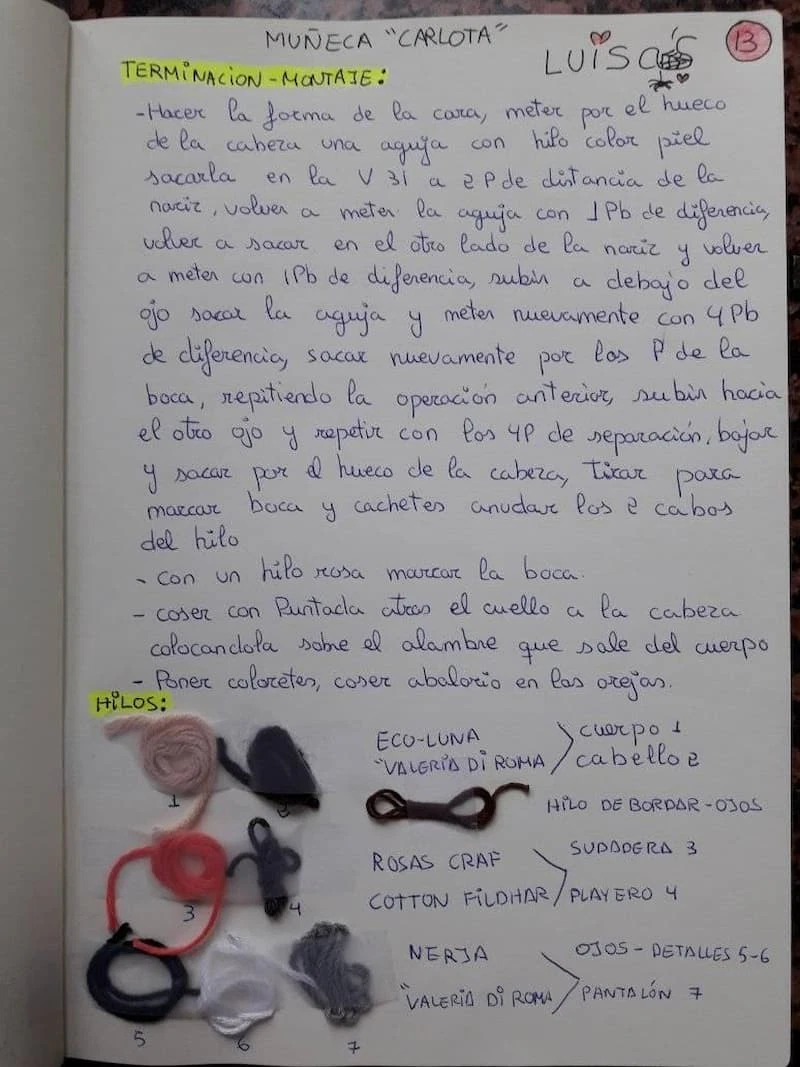 MUÑECA "CARLOTA"
LUISA'S
13
TERMINACION-MONTAJE:
-Hacer la forma de la cara, meter por el hueco
de la cabeza una aguja con hilo color piel
sacarla en la V 31 a 2 P de distancia de la
nariz, volver a meter la aguja con 1Pb de diferencia,
volver a sacar en el otro lado de la nariz y volver
a meter con 1Pb de diferencia, subir a debajo del
ojo sacar la aguja y meter nuevamente con 4 Pb
de diferencia, sacar nuevamente por los P de la
boca, repitiendo la operación anterior, subir hacia
el otro ojo y repetir con los 4P de separación, bajar
y sacar por el hueco de la cabeza, tirar para
marcar boca y cachetes anudar los 2 cabos
del hilo
- con un hilo rosa marcar la boca.
- coser con Puntada atras el cuello a la cabeza
colocandola sobre el alambre que sale del cuerpo
- Poner coloretes, coser abalorio en las orejas.
HILOS:
1
2
ECO-LUNA
"VALERIA DI ROMA
cuerpo 1
cabello 2
HILO DE BORDAR-OJOS
3
4
ROSAS CRAF
COTTON FILDHAR
SUDADERA 3
PLAYERO 4
5
6
7
NERJA
"VALERIA DI ROMA
OJOS-DETALLES 5-6
PANTALÓN 7